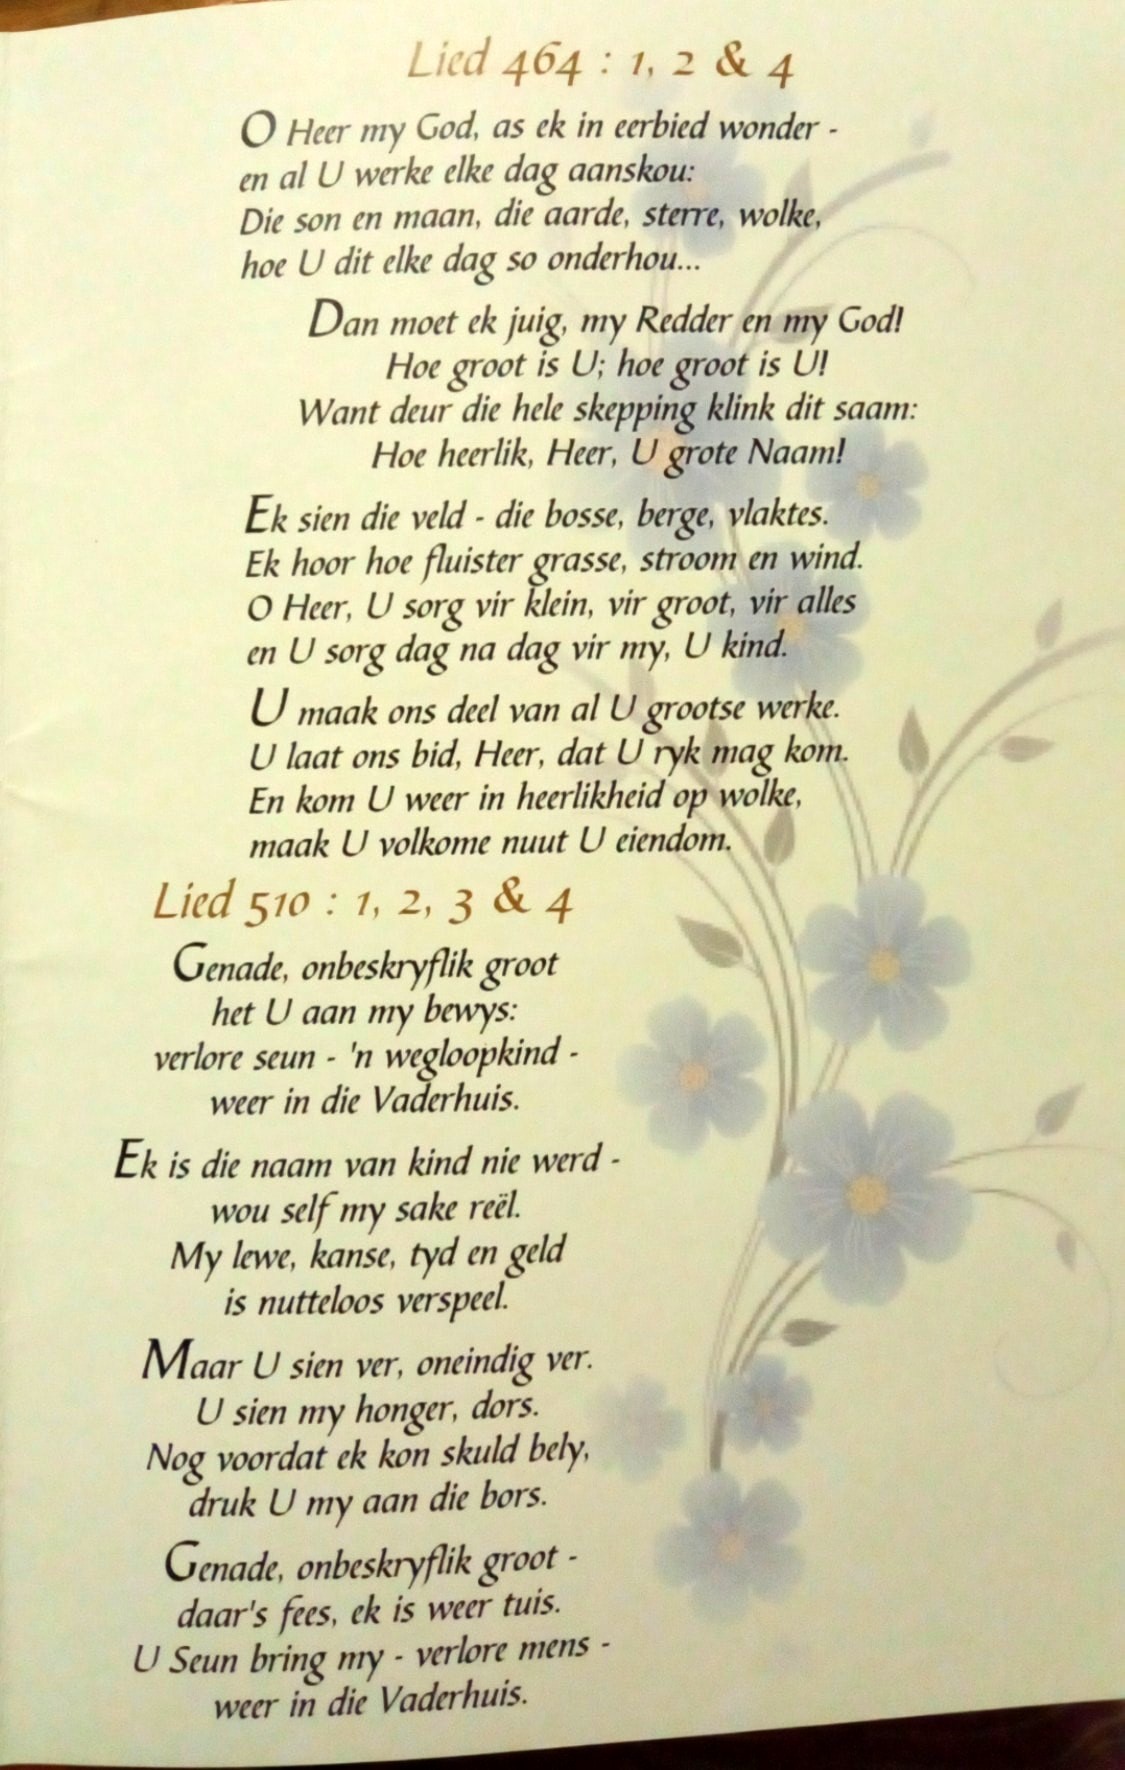 Lied 464 : 1, 2 & 4
O Heer my God, as ek in eerbied wonder -
en al U werke elke dag aanskou:
Die son en maan, die aarde, sterre, wolke,
hoe U dit elke dag so onderhou...
Dan moet ek juig, my Redder en my God!
Hoe groot is U; hoe groot is U!
Want deur die hele skepping klink dit saam:
Hoe heerlik, Heer, U grote Naam!
Ek sien die veld - die bosse, berge, vlaktes.
Ek hoor hoe fluister grasse, stroom en wind.
O Heer, U sorg vir klein, vir groot, vir alles
en U sorg dag na dag vir my, U kind.
U maak ons deel van al U grootse werke.
U laat ons bid, Heer, dat U ryk mag kom.
En kom U weer in heerlikheid op wolke,
maak U volkome nuut U eiendom.
Lied 510 : 1, 2, 3 & 4
Genade, onbeskryflik groot
het U aan my bewys:
verlore seun - 'n wegloopkind -
weer in die Vaderhuis.
Ek is die naam van kind nie werd -
wou self my sake reël.
My lewe, kanse, tyd en geld
is nutteloos verspeel.
Maar U sien ver, oneindig ver.
U sien my honger, dors.
Nog voordat ek kon skuld bely,
druk U my aan die bors.
Genade, onbeskryflik groot -
daar's fees, ek is weer tuis.
U Seun bring my - verlore mens -
weer in die Vaderhuis.